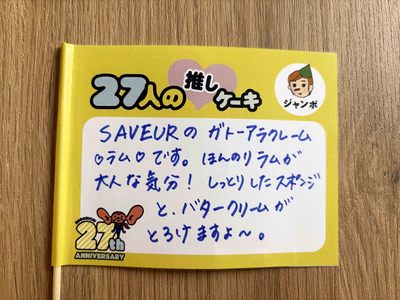 27人の推しケーキ
ジャンボ
SAVEURの ガトーアラクレーム
♡ラム♡です。ほんのりラムが
大人な気分！しっとりしたスポンジ
と、バタークリームが
とろけますよ〜。
27th
ANNIVERSARY